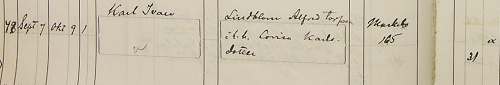 48 Sept 7 Okt 9 1
Karl Ivar
Lindblom Alfred torpare
i h.h. Lovisa Karls-
dotter
Markebo
165
31